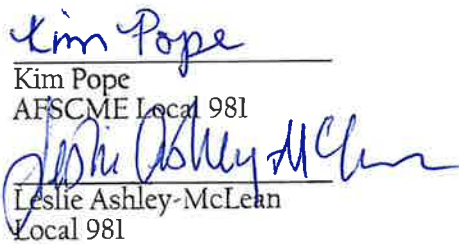 Kim Pope
Kim Pope
AFSCME Local 981
Leslie Ashley McLean
Leslie Ashley-McLean
Local 981